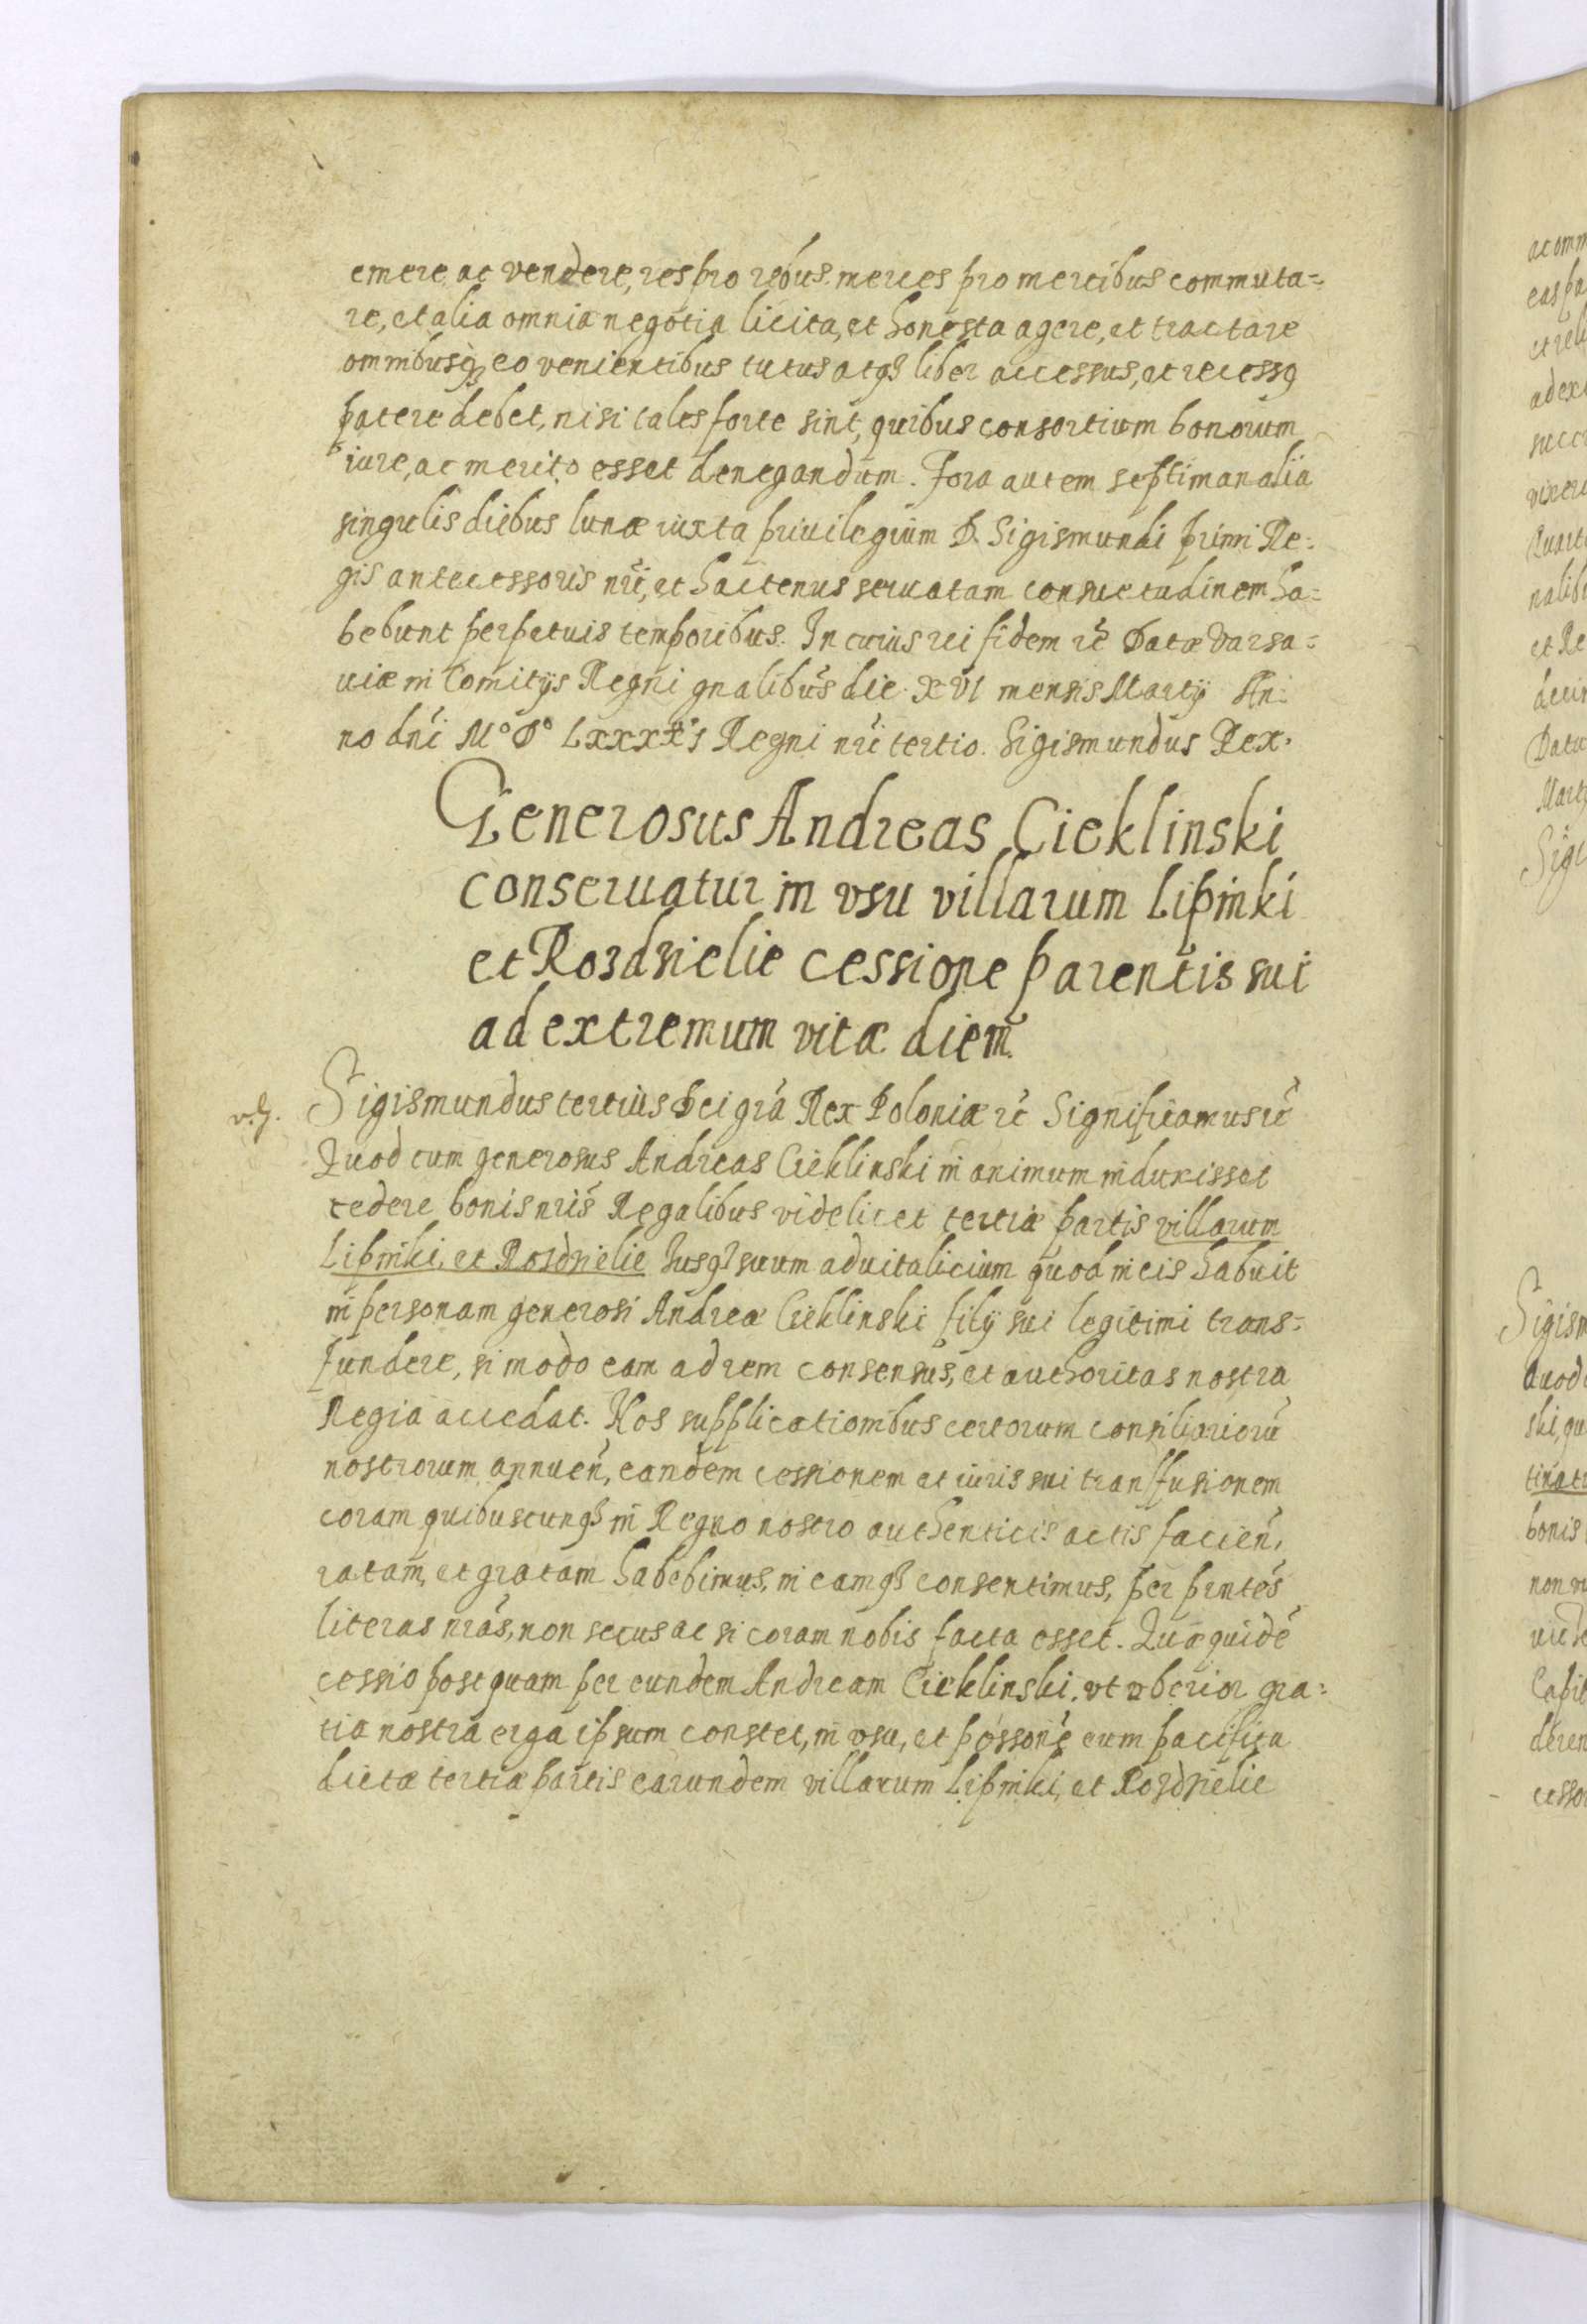 emere ac vendere, res pro rebus merces pro mercibus commuta=
re, et alia omnia negotia licita, et honesta agere, et tractare
omnibusq3 eo venientibus tutus atq3 liber accessus, et recessus
patere debet, nisi tales forte sint, quibus consortium bonorum
iure, ac merito esset denegandum. Fora autem septimanalia
singulis diebus lunæ iuxta priuilegium D. Sigismundi primi Re=
gis antecessoris nři, et hactenus seruatam consuetudinem ha=
bebunt perpetuis temporibus. In cuius rei fidem rč Datæ Varsa=
uiæ in Comitijs Regni gnalibus die XVI mensis Martij An=
no dni M° D° Regni nři tertio. Sigismundus Rex.
Generosus Andreas Cieklinski
conseruatur in vsu villarum Lipinki
et Rozdzielie cessione parentis sui
ad extremum vitæ diem.
Sigismundus tertius Dei grá Rex Poloniæ rč Significamus rč
Quod cum generosus Andreas Cieklinski in animum induxisset
cedere bonis nris Regalibus videlicet tertiæ partis villarum
Lipinki, et Rozdzielie Iusq3 suum aduitalicium quod in eis habuit
in personam generosi Andreæ Cieklinski filij sui legitimi trans=
fundere, si modo eam ad rem consensus, et authoritas nostra
Regia accedat. Nos supplicationibus certorum consiliarioru
nostrorum annuen, eandem cessionem et iuris sui transfusionem
coram quibuscunq3 in Regno nostro authenticis actis facien,
ratam, et gratam habebimus, in eamq3 consentimus, per prntes
literas nras, non secus ac si coram nobis facta esset. Quæ quide
cessio postquam per eundem Andream Cieklinski, vt vberior gra=
tia nostra erga ipsum constet, in vsu, et possone eum pacifica
dictæ tertiæ partis earundem villarum Lipinki, et Rozdzielie